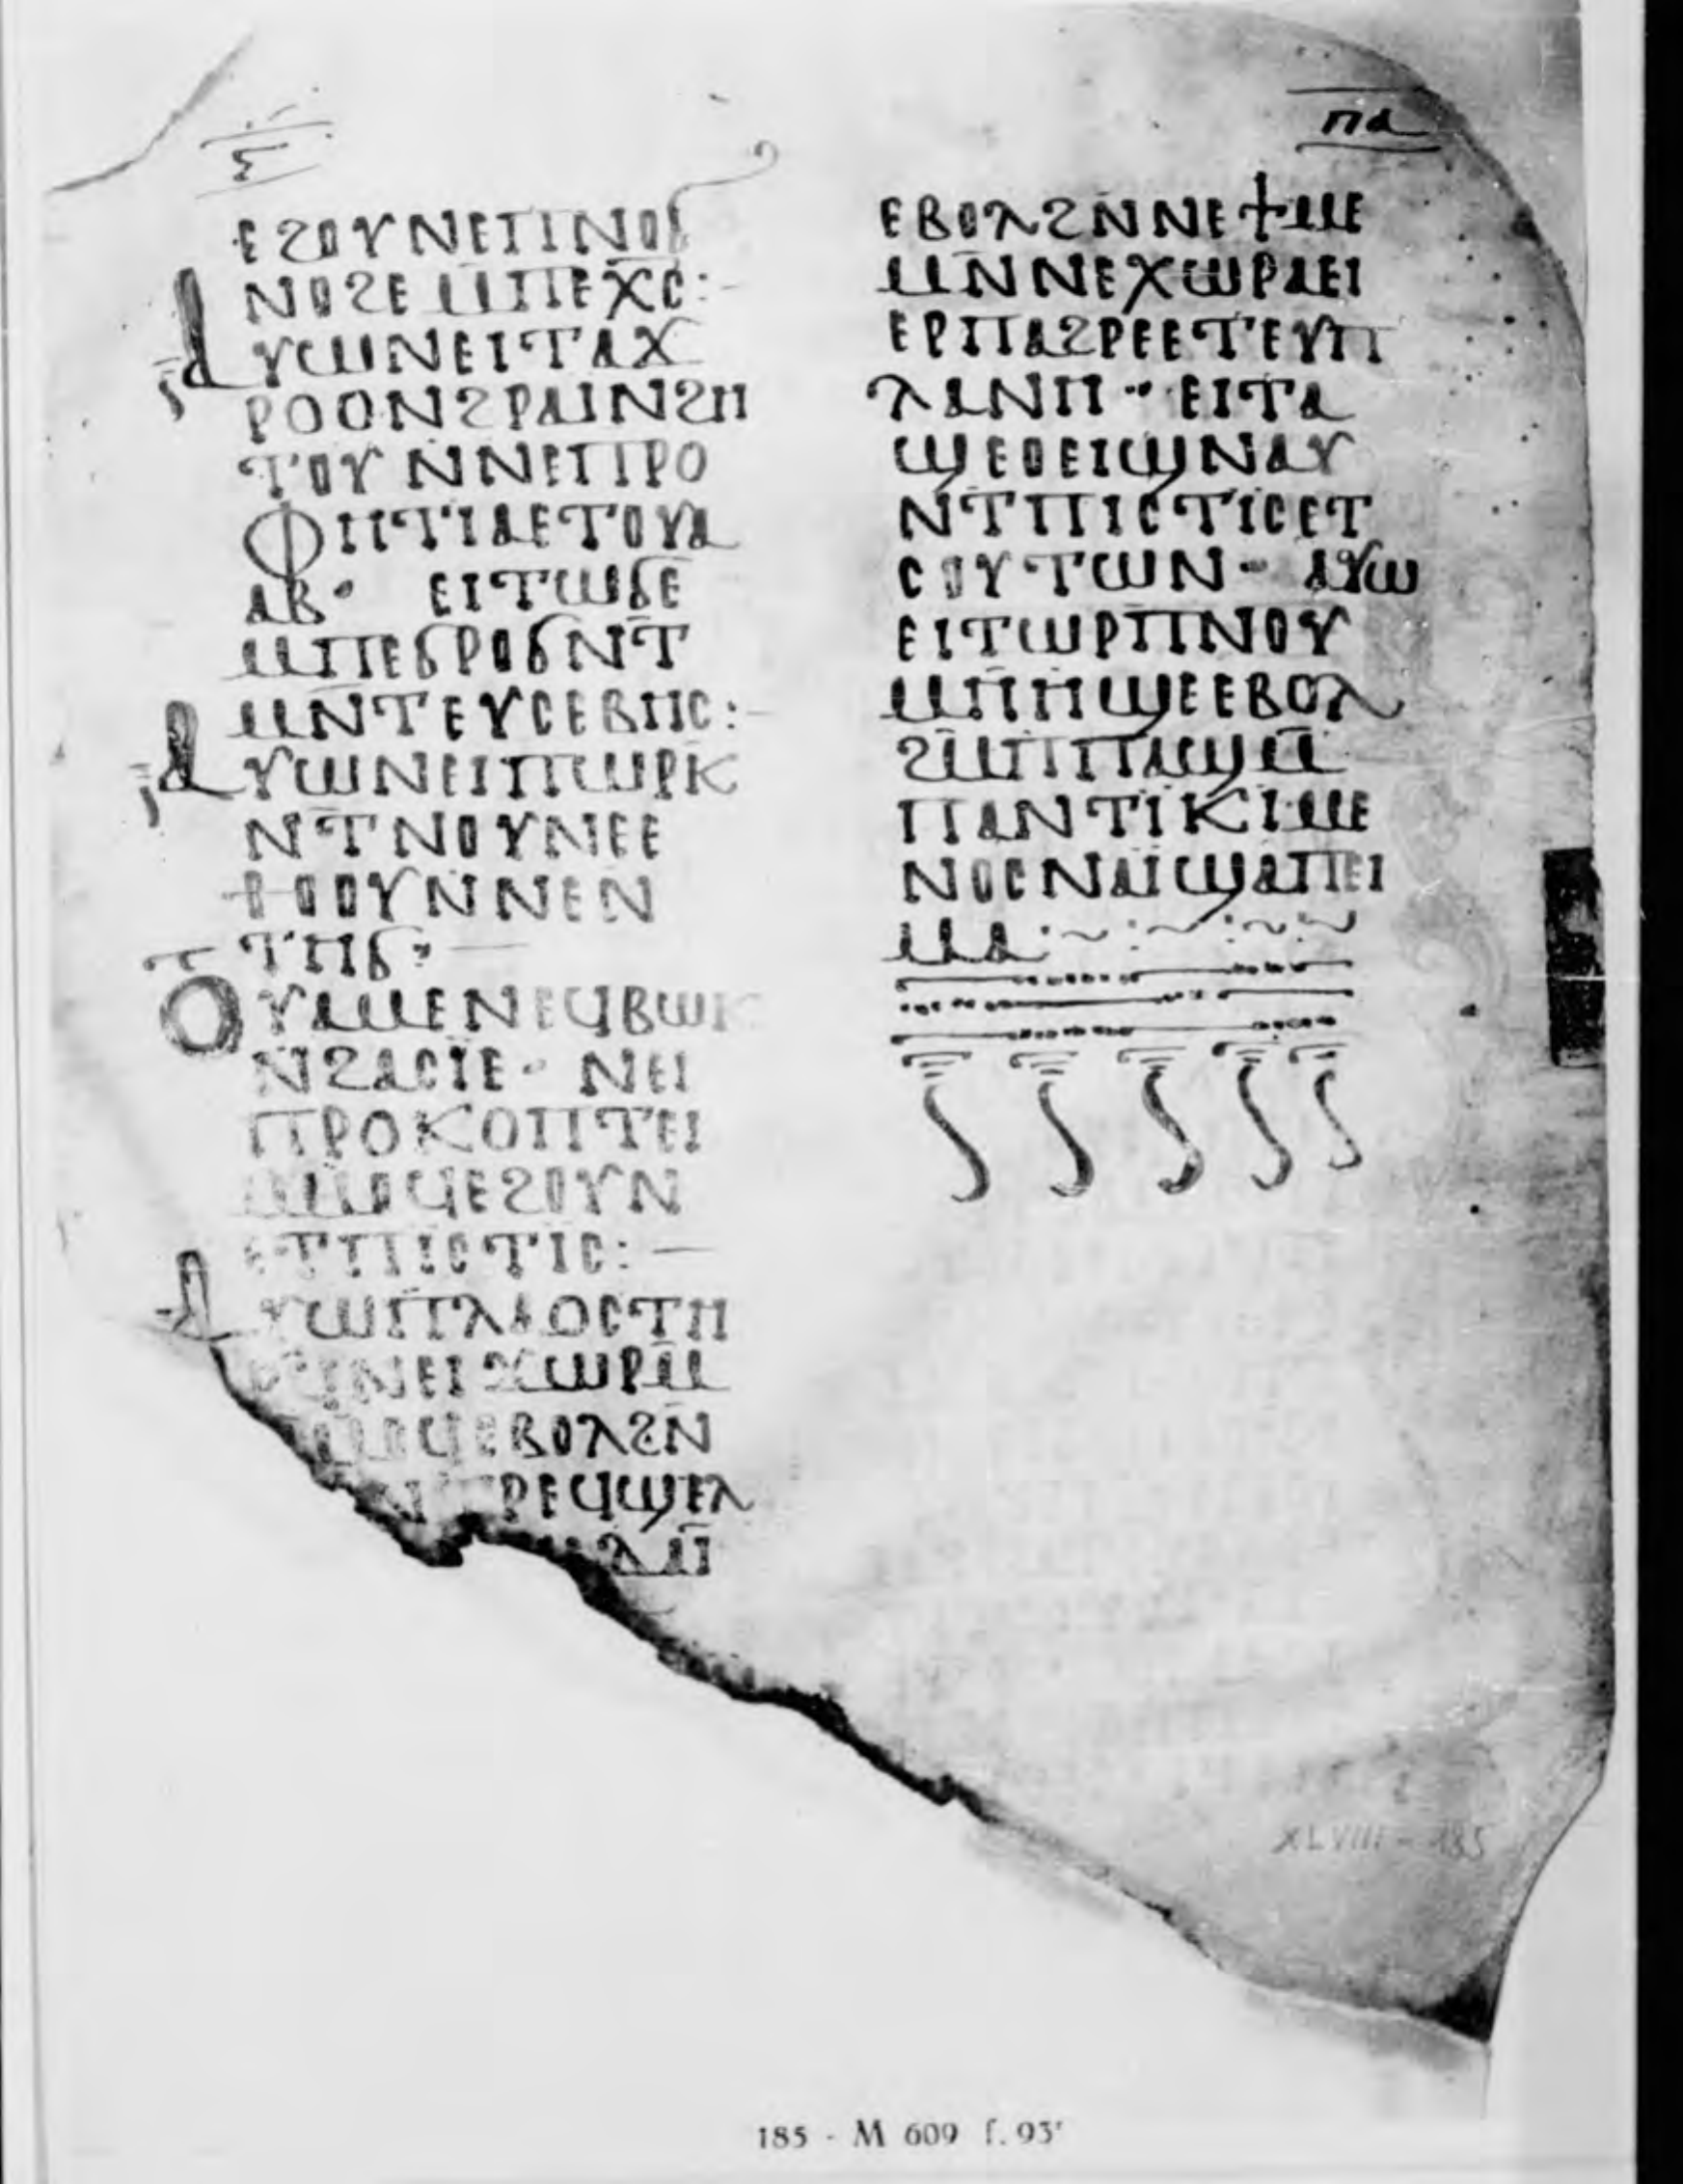 ⲋ
ⲡⲁ
ⲉϩⲟⲩⲛⲉⲡⲓⲛⲟϭ
ⲛⲟϩⲉⲙⲡⲉⲭ̅ⲥ̅:-
ⲁⲩⲱⲛⲉⲓⲧⲁϫ
ⲣⲟⲟⲛϩⲣⲁⲓⲛϩⲏ
ⲧⲟⲩⲛⲛⲉⲡⲣⲟ
ⲫⲏⲧⲓⲁⲉⲧⲟⲩⲁ
ⲁⲃ· ⲉⲓⲧⲱϭⲉ
ⲙⲡⲉϭⲣⲟϭⲛⲧ
ⲙⲛⲧⲉⲩⲥⲉⲃⲏⲥ:-
ⲁⲩⲱⲛⲉⲓⲡⲱⲣⲕ
ⲛⲧⲛⲟⲩⲛⲉⲉ
ⲃⲟⲟⲩⲛⲛⲉⲛ
ⲧⲏϭ:—
ⲟⲩⲙⲉⲛⲉϥⲃⲱⲕ
ⲛϩⲁⲥⲓⲉ· ⲛⲉⲓ
ⲡⲣⲟⲕⲟⲡⲧⲉⲓ
ⲙⲙⲟϥⲉϩⲟⲩⲛ
ⲉⲧⲡⲓⲥⲧⲓⲥ:—
ⲁⲩⲱⲡⲗⲁⲟⲥⲧⲏ
ⲣϥⲛⲉⲓϫⲱⲣⲙ̅
ⲙⲙⲟϥⲉⲃⲟⲗϩⲛ
ⲣⲉϥϣⲙ̅ϣⲉⲗ
ⲉⲃⲟⲗϩⲛⲛⲉϯⲙⲉ
ⲙⲛⲛⲉⲭⲱⲣⲁⲉⲓ
ⲉⲣⲡⲁϩⲣⲉⲉⲧⲉⲩⲡ
ⲗⲁⲛⲏ· ⲉⲓⲧⲁ
ϣⲉⲟⲉⲓϣⲛⲁⲩ
ⲛⲧⲡⲓⲥⲧⲓⲥⲉⲧ
ⲥⲟⲩⲧⲱⲛ· ⲁⲩⲱ
ⲉⲓⲧⲱⲣⲡⲛⲟⲩ
ⲙⲏⲏϣⲉⲉⲃⲟⲗ
ϩⲙ̅ⲡⲡⲁϣⲙ̅
ⲡⲁⲛⲧⲓⲕⲓⲙⲉ
ⲛⲟⲥⲛⲁⲓ̈ϣⲁⲡⲉⲓ
ⲙⲁ:~:~:~:~
XLVIII - 185
185 - M 609 f. 93r